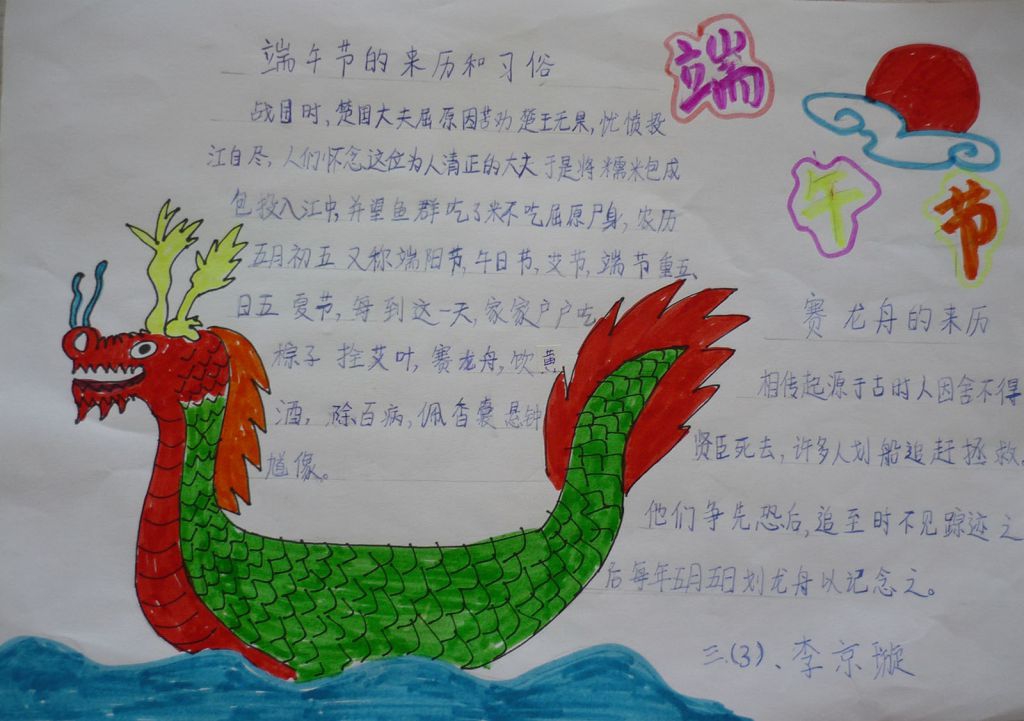 端午节
端午节的来历和习俗
战国时,楚国大夫屈原因苦劝楚王无果,忧愤投
江自尽,人们怀念这位为人清正的大夫于是将糯米包成
包投入江中,并望鱼群吃了米不吃屈原尸身,农历
五月初五又称端阳节,午日节,艾节,端节重五、
日五夏节,每到这一天,家家户户吃
粽子拴艾叶,赛龙舟,饮黄
酒,除百病,佩香囊悬钟
馗像。
赛龙舟的来历
相传起源于古时人因舍不得
贤臣死去,许多人划船追赶拯救,
他们争先恐后,追至时不见踪迹之
后每年五月五日划龙舟以记念之。
三(3)、李京璇